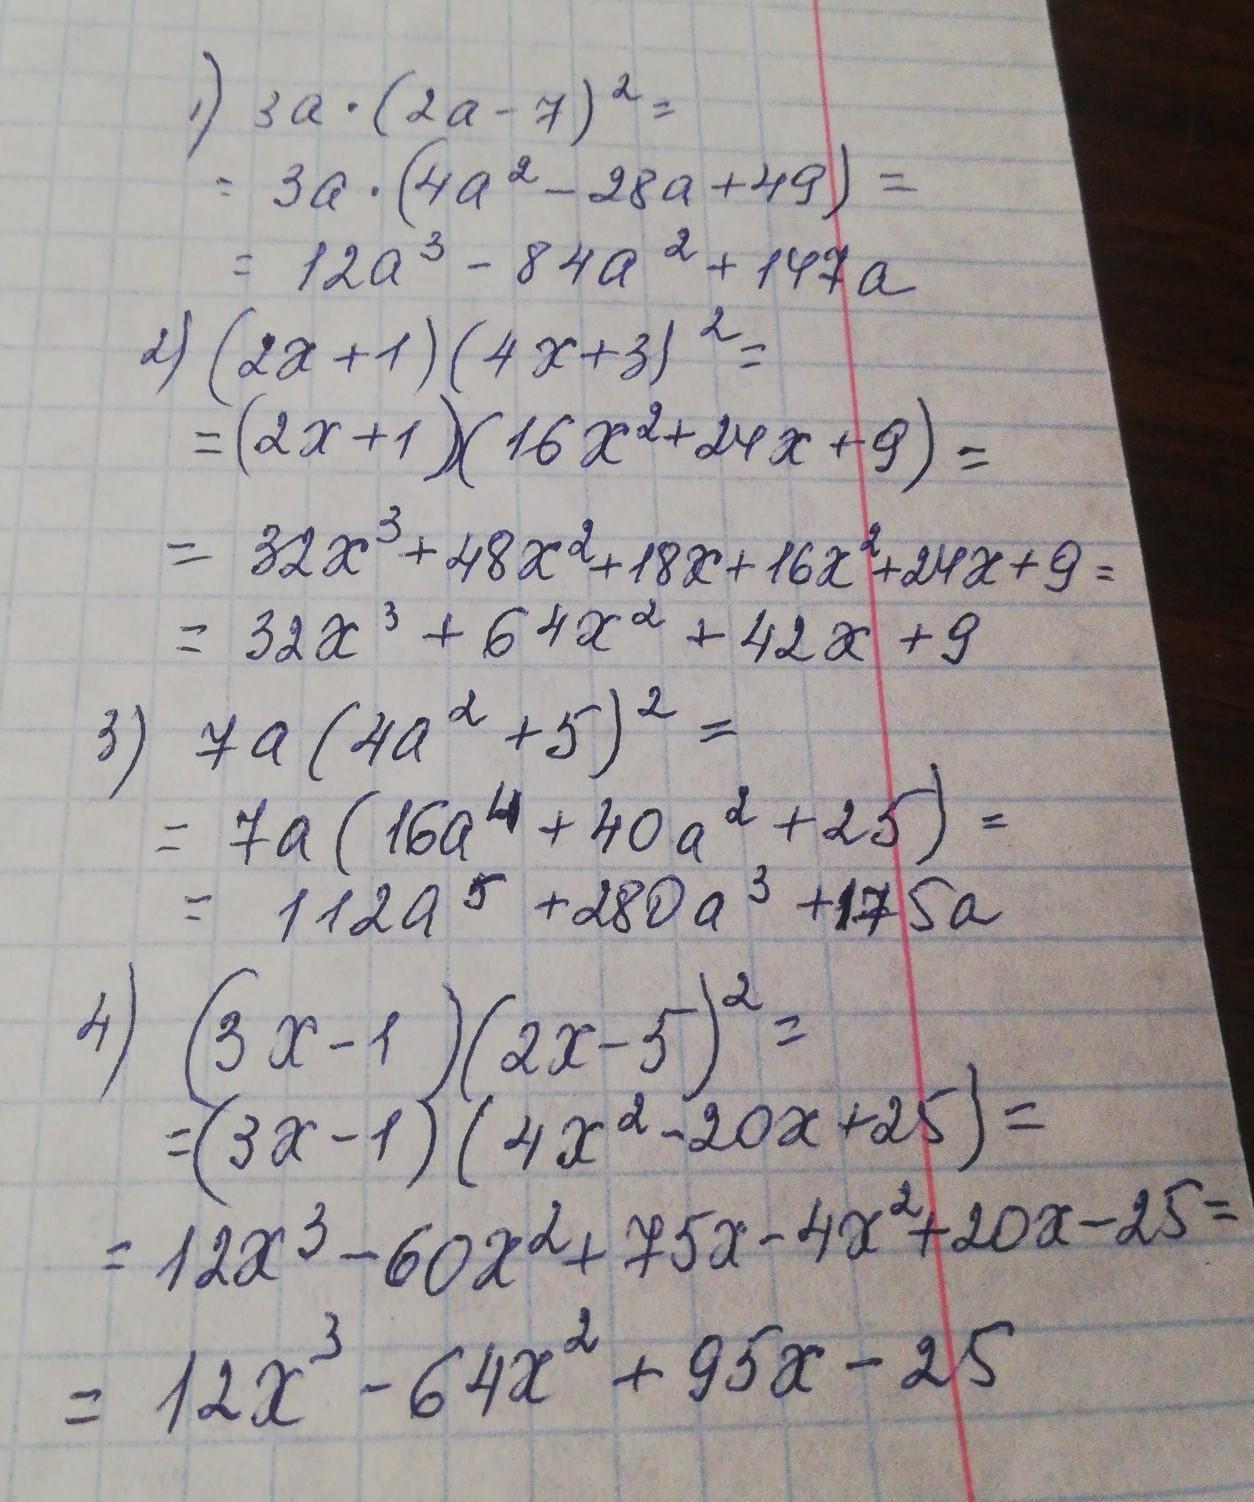 1) 3a · (2a - 7)² =
= 3a · (4a² - 28a + 49) =
= 12a³ - 84a² + 147a
2) (2x + 1)(4x + 3)² =
= (2x + 1)(16x² + 24x + 9) =
= 32x³ + 48x² + 18x + 16x² + 24x + 9 =
= 32x³ + 64x² + 42x + 9
3) 7a(4a² + 5)² =
= 7a(16a⁴ + 40a² + 25) =
= 112a⁵ + 280a³ + 175a
4) (3x - 1)(2x - 5)² =
= (3x - 1)(4x² - 20x + 25) =
= 12x³ - 60x² + 75x - 4x² + 20x - 25 =
= 12x³ - 64x² + 95x - 25